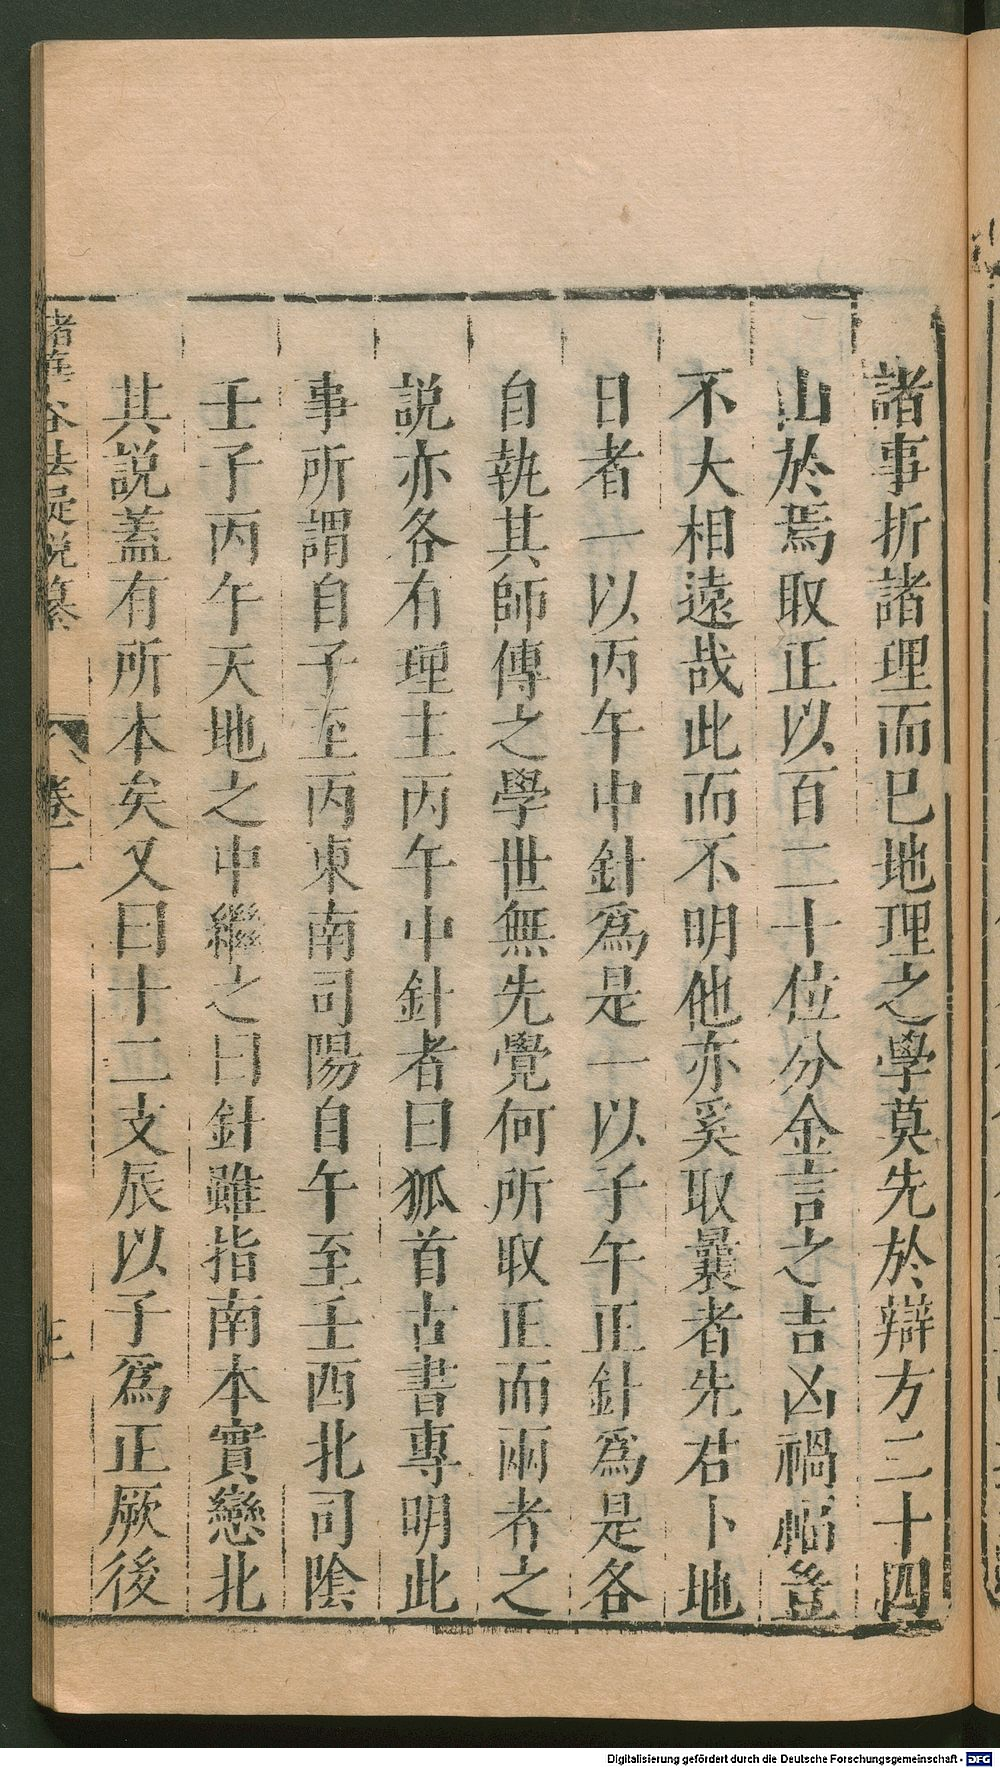 諸事折諸理而已地理之學莫先於辯方二十四
山於焉取正以百二十位分金言之吉凶禍福豈
不大相遠哉此而不明他亦奚取曩者先君卜地
日者一以丙午中針爲是一以子午正針爲是各
自執其師傳之學世無先覺何所取正而兩者之
説亦各有理主丙午中針者曰狐首古書專明此
事所謂自子至丙東南司陽自午至壬西北司陰
壬子丙午天地之中繼之曰針雖指南本實戀北
其説蓋有所本矣又曰十二支辰以子爲正厥後
卷一
Digitalisierung gefördert durch die Deutsche Forschungsgemeinschaft - DFG